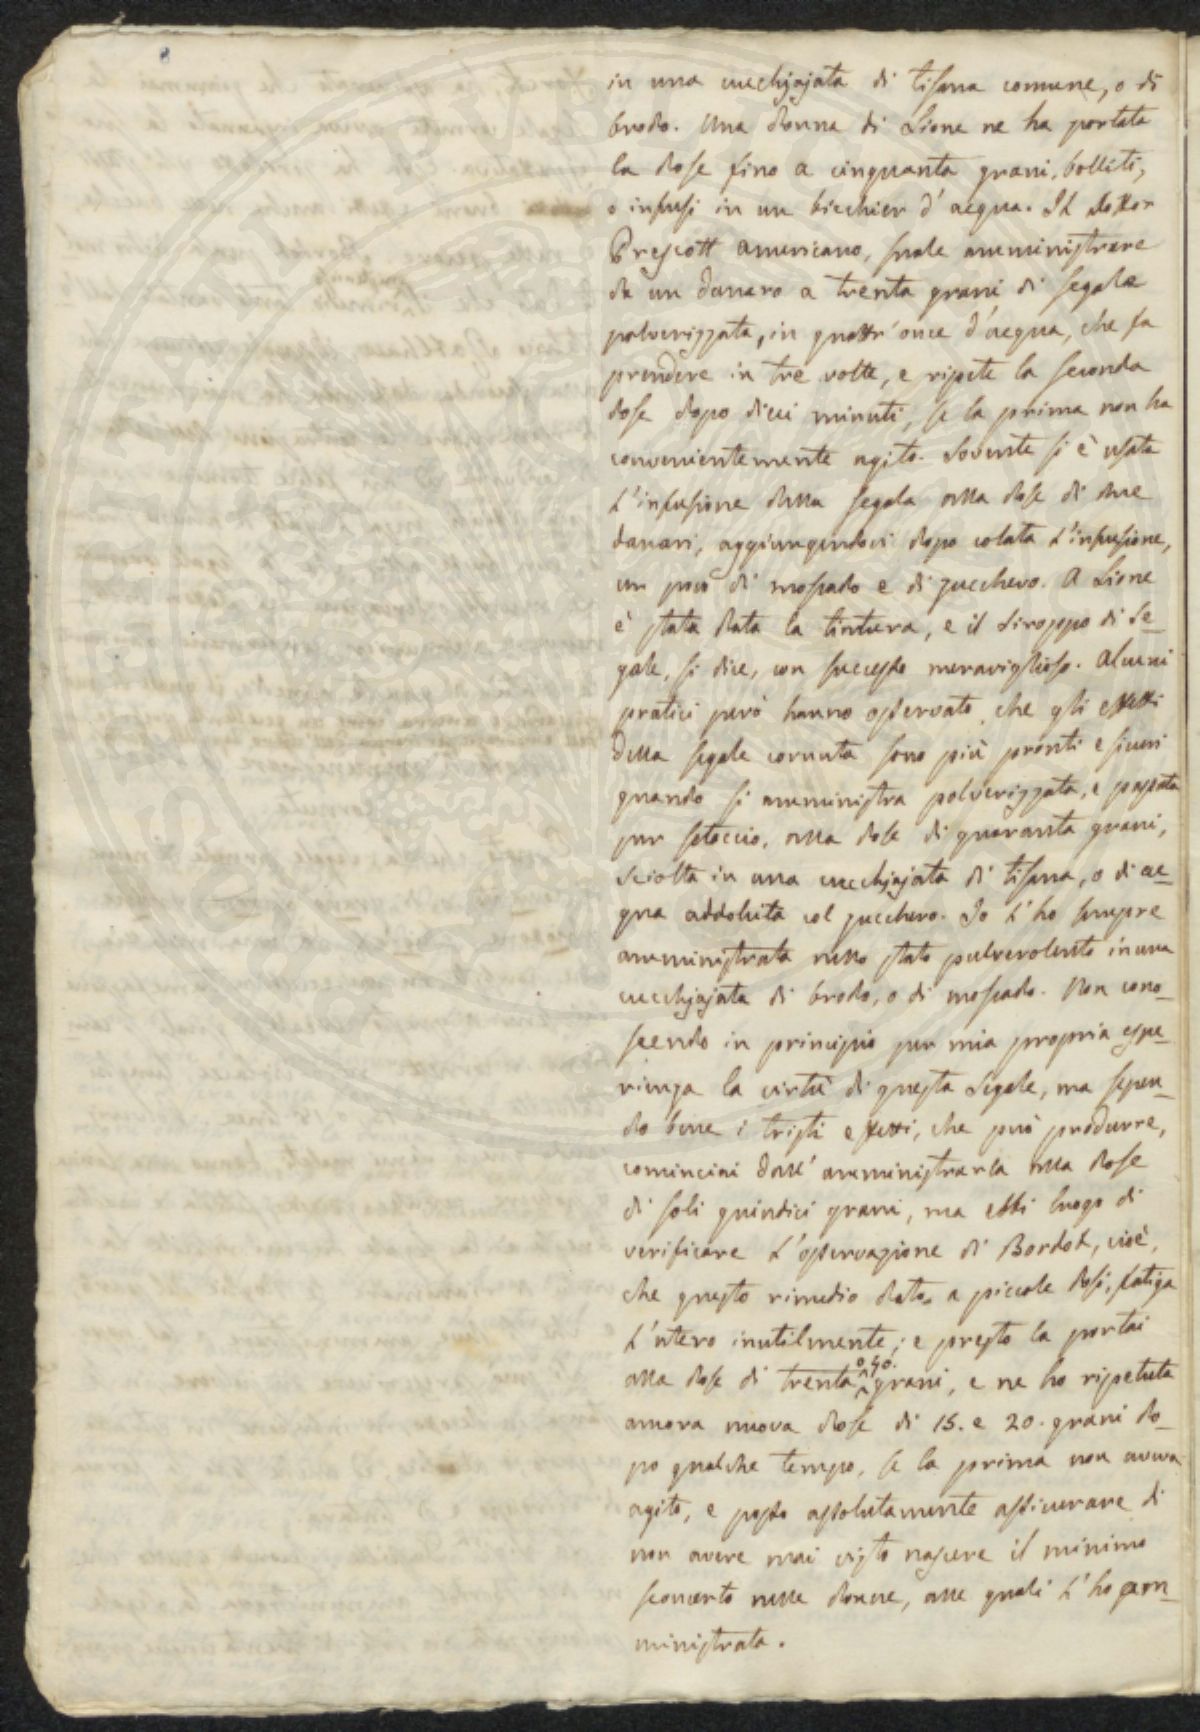 in una cucchjajata di tisana comune, o di
brodo. Una donna di Lione ne ha portata
la dose fino a cinquanta grani, bolliti,
o infusi in un bicchier d'acqua. Il dottor
Prescott americano, suole amministrare
da un danaro a trenta grani di segale
polverizzata, in quattr'once d'acqua, che fa
prendere in tre volte, e ripete la seconda
dose dopo dieci minuti, se la prima non ha
convenientemente agito. Sovente si è usata
l'infusione della segala alla dose di due
danari, aggiungendoci dopo colata l'infusione,
un poco di moscado e di zucchero. A Lione
è stata data la tintura, e il siroppo di Se-
gale, si dice, con successo meraviglioso. Alcuni
pratici però hanno osservato, che gli effetti
della segale cornuta sono più pronti e sicuri
quando si amministra polverizzata, e passata
per setaccio, alla dose di quaranta grani,
sciolta in una cucchjajata di tisana, o di ac-
qua addolcita col zucchero. Io l'ho sempre
amministrata nello stato pulverolento in una
cucchjajata di brodo, o di moscado. Non cono-
scendo in principio per mia propria espe-
rienza la virtù di questa Segale, ma sapen-
do bene i tristi effetti, che può produrre,
cominciai dall'amministrarla alla dose
di soli quindici grani, ma ebbi luogo di
verificare l'osservazione di Bordot, cioè,
che questo rimedio dato a piccole dosi, fatiga
l'utero inutilmente; e presto la portai
alla dose di trenta o 40. grani, e ne ho ripetuta
ancora nuova dose di 15. e 20. grani do-
po qualche tempo, se la prima non aveva
agito, e posso assolutamente assicurare di
non avere mai visto nascere il minimo
sconcerto nelle donne, alle quali l'ho am-
ministrata.